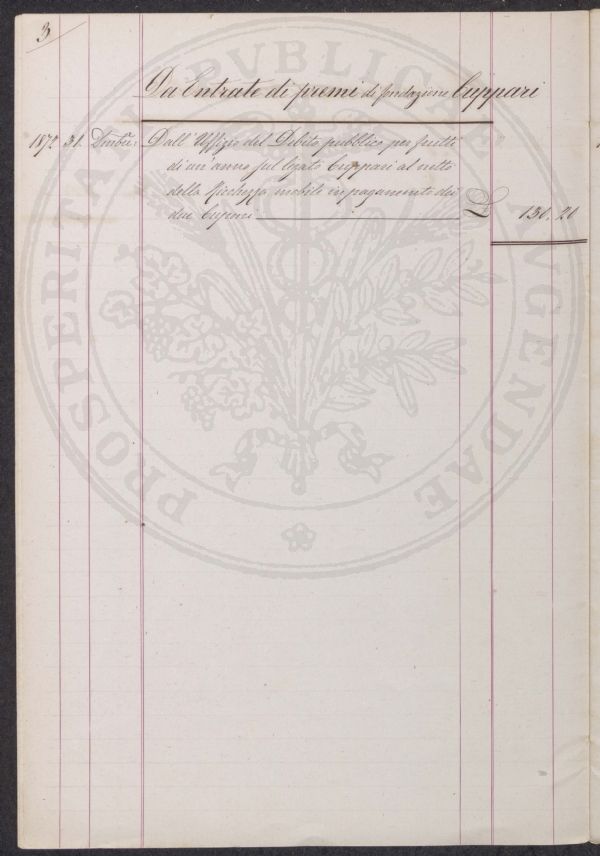 3
Da Entrate di premi di fondazione Cuppari
1872 31. Dmbre: Dall'Uffizio del Debito pubblico per frutti
di un'anno sul legato Cuppari al netto
della Ricchezza mobile in pagamento dei
due Cuponi L 130.20
PROSPERITATI PVBLICAE AVGENDAE